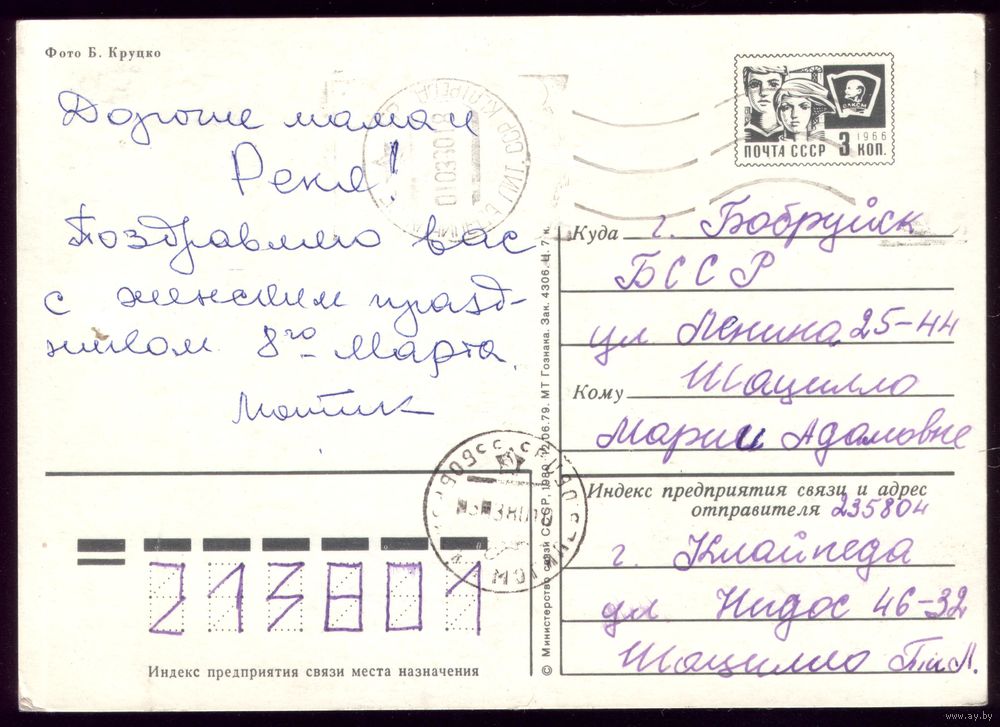 Фото Б. Круцко
Дорогие мама и
Рекя!
Поздравляю вас
с женским празд-
ником 8го Марта.
Мотик
ВЛКСМ
1966
ПОЧТА СССР 3 КОП.
Куда г. Бобруйск
БССР
ул Ленина 25-44
Кому Шацилло
Марии Адамовне
Индекс предприятия связи и адрес
отправителя 235804
г. Клайпеда
ул Нидос 46-32
Шацилло П.и Л.
213801
Индекс предприятия связи места назначения
© Министерство связи СССР, 1980. 12/06.79. МТ Гознака. Зак. 4306. Ц. 7 к.
www.ay.by